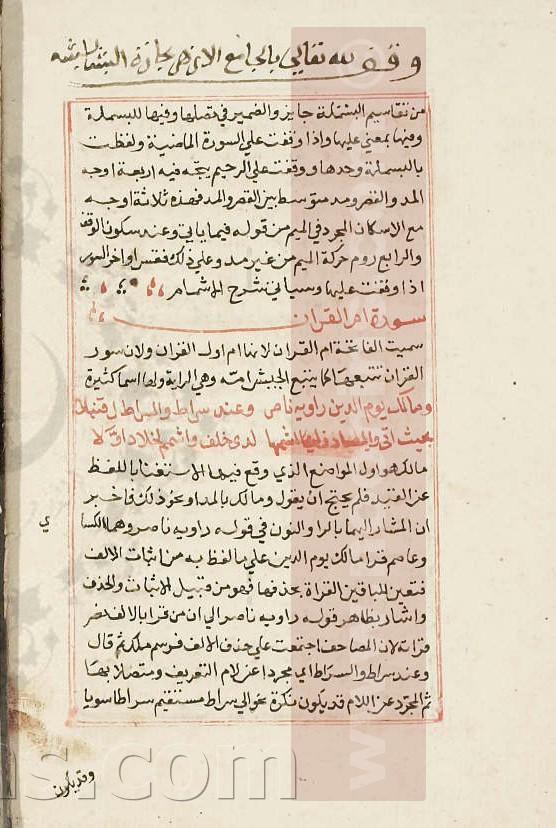 وقف لله تعالى بالجامع الازهر بحارة البشابشه
من تقاسيم البسملة جايز والضمير في تصلها وفيها للبسملة
وفيها بمعني عليها واذا وقفت علي السورة الماضية ولفظت
بالبسملة وحدها ووقفت علي الرحيم يتجه فيه اربعة اوجه
المد والقصر ومد متوسط بين القصر والمد فهذه ثلاثة اوجه
مع الاسكان المجرد في الميم من قوله فيما ياتي وعند سكون الوقف
والرابع روم حركة الميم من غير مد وعلي ذلك فقس اواخر السور
اذا وقفت عليها وسياتي شرح الاشمام
سورة ام القران
سميت الفاتحة ام القران لانها ام اول القران ولان سور
القران تتبعها كما يتبع الجيش امه وهي الراية ولها اسما كثيرة
ومالك يوم الدين راويه ناصر وعند سراط والسراط ل قنبلا
بحيث اتي والصاد زايا اشمها لدي خلف واشمم لخلاد الاولا
مالك هو اول المواضع الذي وقع فيها الاستغنا باللفظ
عن القيد فلم يحتج ان يقول ومالك بالمد او نحو ذلك فاخبر
ان المشار اليهما بالرا والنون في قوله راويه ناصر وهما الكسا
ي
وعاصم قرا مالك يوم الدين علي ما لفظ به من اثبات الالف
فتعين للباقين القراة بحذفها فهو من قبيل الاثبات والحذف
واشار بظاهر قوله راويه ناصر الي ان من قرا بالالف نصر
قراته لان المصاحف اجتمعت علي حذف الالف فرسم ملك ثم قال
وعند سراط والسراط اي مجردا عن لام التعريف ومتصلا بها
ثم المجرد عن اللام قد يكون نكرة نحو الي سراط مستقيم سراطا سويا
وقد يكون
s.com